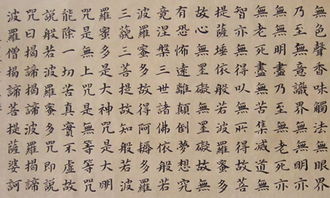 無色聲香味觸法無眼界
乃至無意識界無無明亦
無無明盡乃至無老死亦
無老死盡無苦集滅道無
智亦無得以無所得故菩
提薩埵依般若波羅蜜多
故心無罣礙無罣礙故無
有恐怖遠離顛倒夢想究
竟涅槃三世諸佛依般若
波羅蜜多故得阿耨多羅
三藐三菩提故知般若波
羅蜜多是大神咒是大明
咒是無上咒是無等等咒
能除一切苦真實不虛故
說般若波羅蜜多咒即說
咒曰揭諦揭諦波羅揭諦
波羅僧揭諦菩提薩婆訶